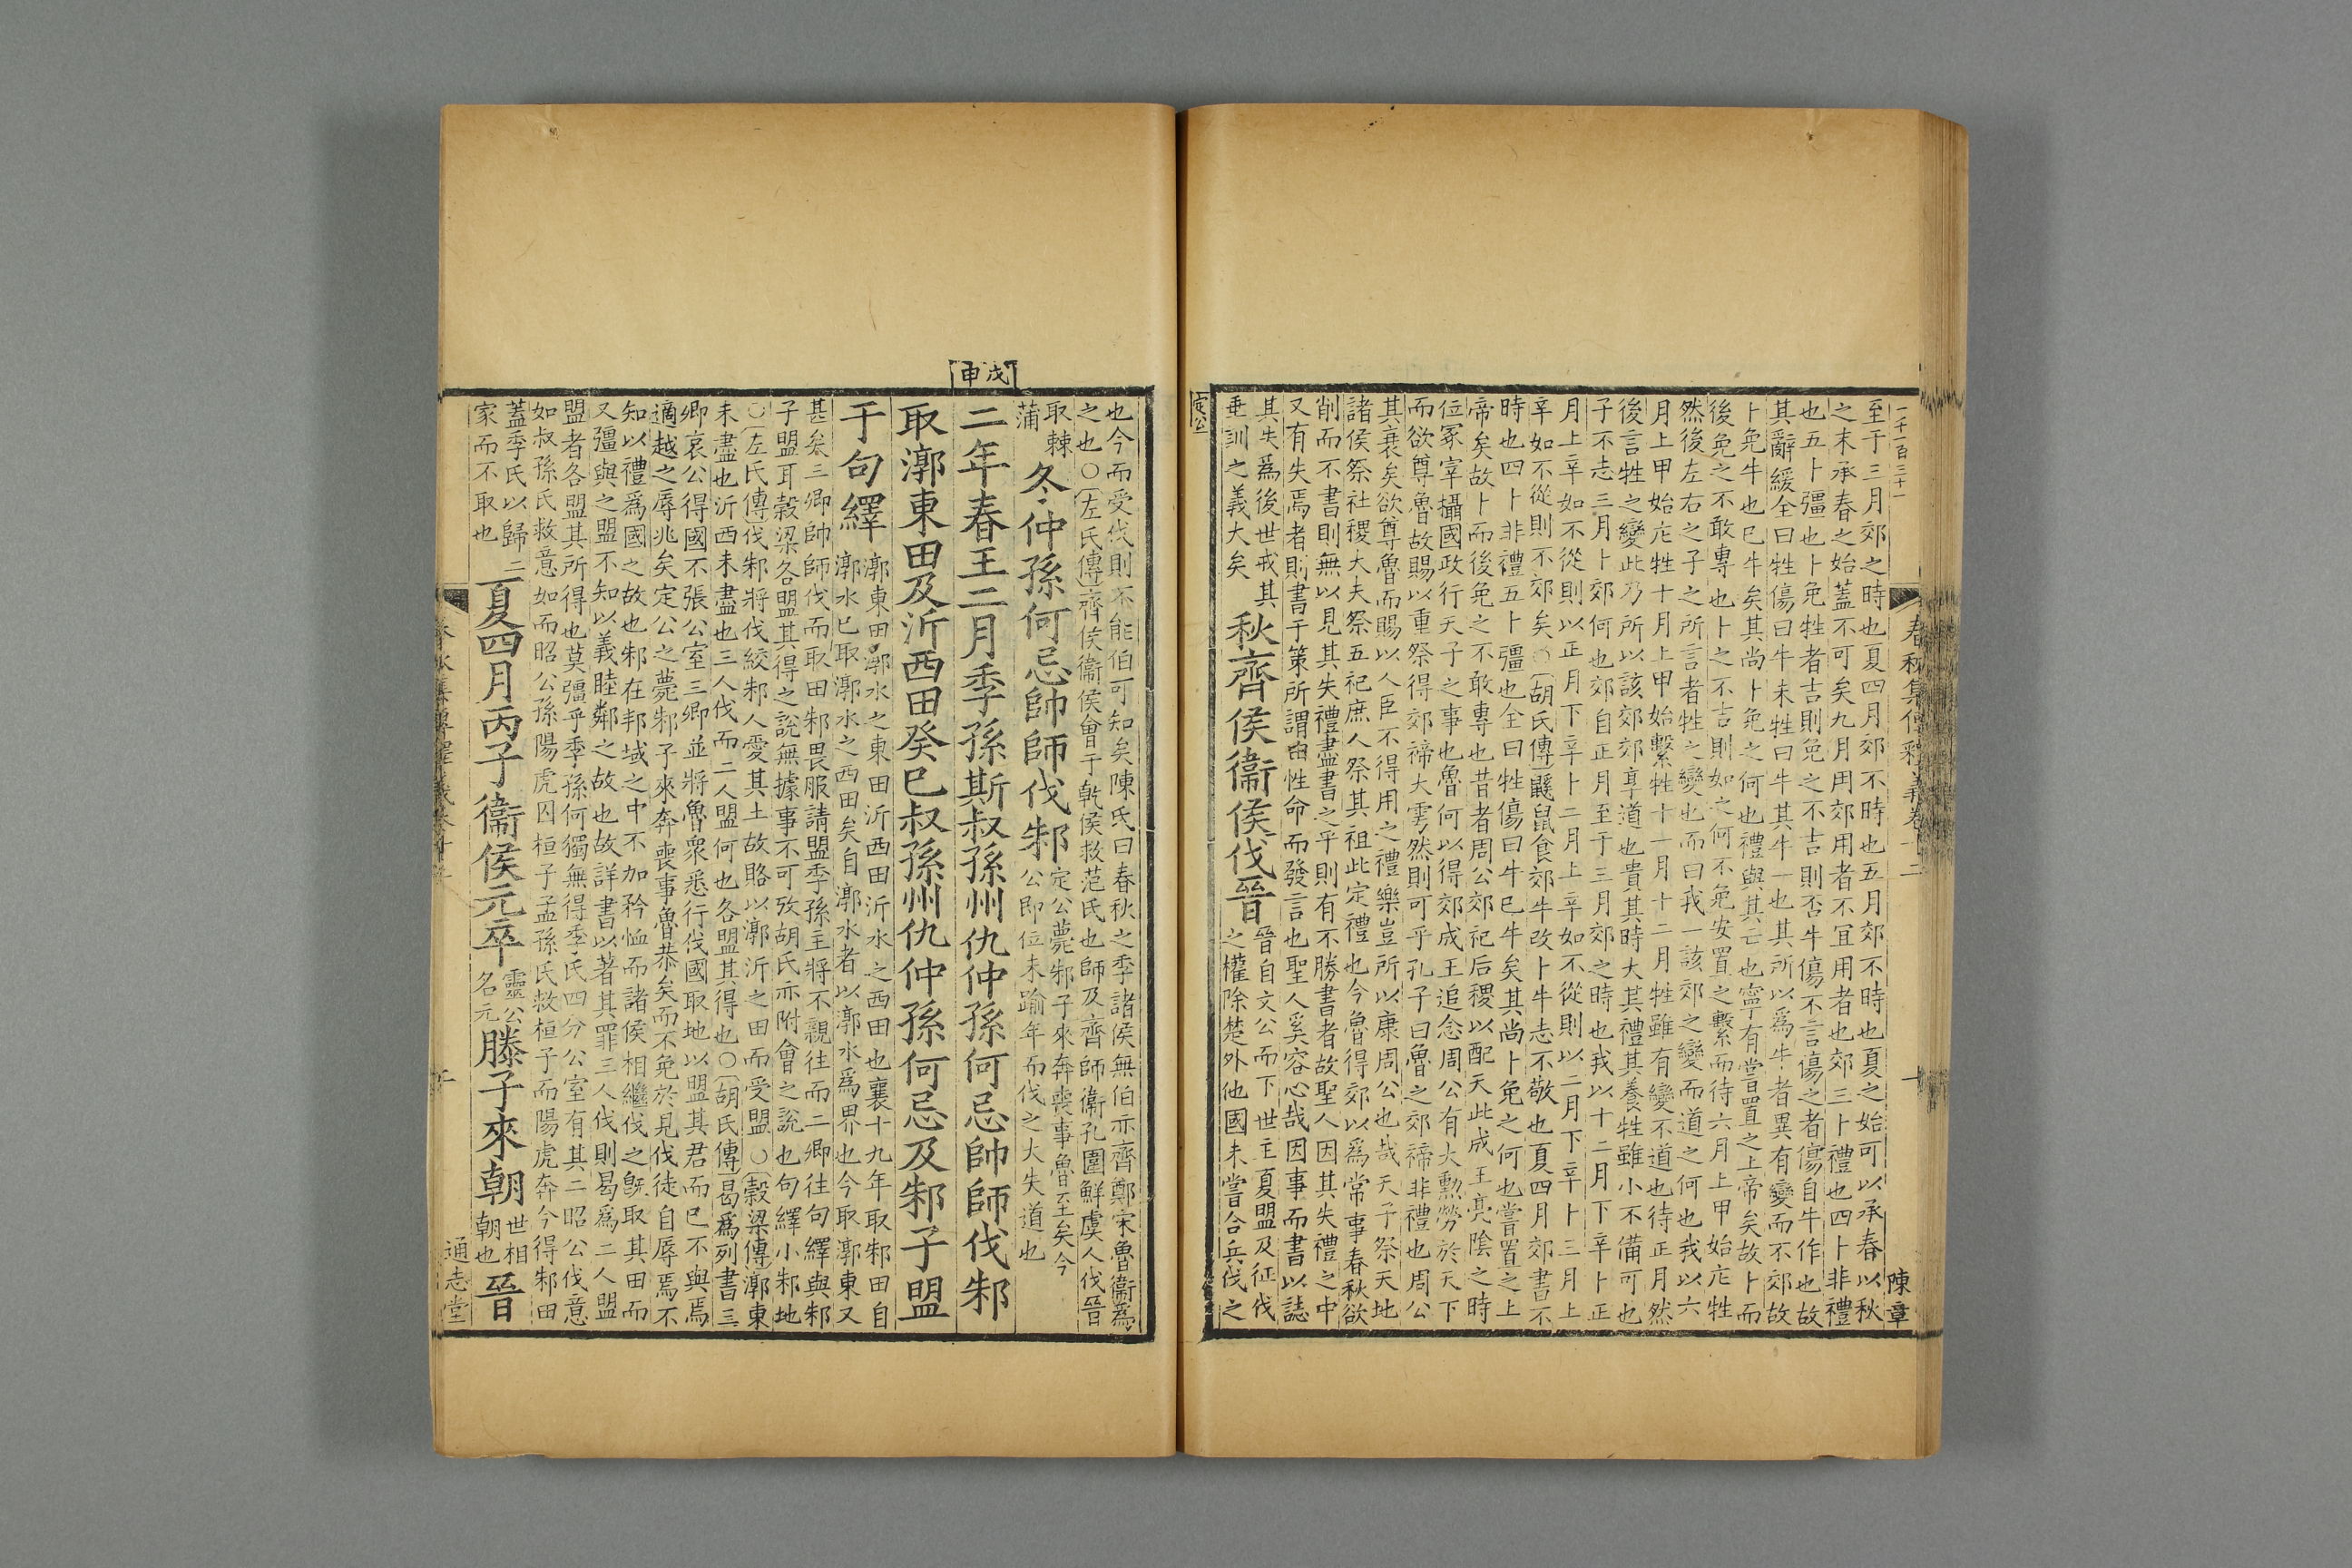 一千一百三十一
春秋集傳釋義卷十二
十
陳章
至于三月郊之時也夏四月郊不時也五月郊不時也夏之始可以承春以秋
之末承春之始蓋不可矣九月用郊用者不宜用者也郊三卜禮也四卜非禮
也五卜彊也卜免牲者吉則免之不吉則否牛傷不言傷之者傷自牛作也故
其辭緩全曰牲傷曰牛未牲曰牛其牛一也其所以為牛者異有變而不郊故
卜免牛也已牛矣其尚卜免之何也禮與其亡也寧有嘗置之上帝矣故卜而
後免之不敢專也卜之不吉則如之何不免安置之繫而待六月上甲始庀牲
然後左右之子之所言者牲之變也而曰我一該郊之變而道之何也我以六
月上甲始庀牲十月上甲始繫牲十一月十二月牲雖有變不道也待正月然
後言牲之變此乃所以該郊郊享道也貴其時大其禮其養牲雖小不備可也
子不志三月卜郊何也郊自正月至于三月郊之時也我以十二月下辛卜正
月上辛如不從則以正月下辛卜二月上辛如不從則以二月下辛卜三月上
辛如不從則不郊矣○胡氏傳鼷鼠食郊牛改卜牛志不敬也夏四月郊書不
時也四卜非禮五卜彊也全曰牲傷曰牛已牛矣其尚卜免之何也嘗置之上
帝矣故卜而後免之不敢專也昔者周公郊祀后稷以配天此成王亮陰之時
位冢宰攝國政行天子之事也魯何以得郊成王追念周公有大勲勞於天下
而欲尊魯故賜以重祭得郊禘大雩然則可乎孔子曰魯之郊禘非禮也周公
其衰矣欲尊魯而賜以人臣不得用之禮樂豈所以康周公也哉天子祭天地
諸侯祭社稷大夫祭五祀庶人祭其祖此定禮也今魯得郊以為常事春秋欲
削而不書則無以見其失禮盡書之乎則有不勝書者故聖人因其失禮之中
又有失焉者則書于策所謂由性命而發言也聖人奚容心哉因事而書以誌
其失為後世戒其
垂訓之義大矣
秋齊侯衞侯伐晉
晉自文公而下世主夏盟及征伐
之權除楚外他國未嘗合兵伐之
定公
也今而受伐則不能伯可知矣陳氏曰春秋之季諸侯無伯亦齊鄭宋魯衞為
之也○左氏傳齊侯衞侯會于乾侯救范氏也師及齊師衞孔圉鮮虞人伐晉
取棘
蒲
冬仲孫何忌帥師伐邾
定公薨邾子來奔喪事魯至矣今
公即位未踰年而伐之大失道也
戊申
二年春王二月季孫斯叔孫州仇仲孫何忌帥師伐邾
取漷東田及沂西田癸巳叔孫州仇仲孫何忌及邾子盟
于句繹
漷東田漷水之東田沂西田沂水之西田也襄十九年取邾田自
漷水已取漷水之西田矣自漷水者以漷水為界也今取漷東又
甚矣三卿帥師伐而取田邾畏服請盟季孫主將不親往而二卿往句繹與邾
子盟耳穀梁各盟其得之說無據事不可攷胡氏亦附會之說也句繹小邾地
○左氏傳伐邾將伐絞邾人愛其土故賂以漷沂之田而受盟○穀梁傳漷東
未盡也沂西未盡也三人伐而二人盟何也各盟其得也○胡氏傳曷為列書三
卿哀公得國不張公室三卿並將魯衆悉行伐國取地以盟其君而已不與焉
適越之辱兆矣定公之薨邾子來奔喪事魯恭矣而不免於見伐徒自辱焉不
知以禮為國之故也邾在邦域之中不加矜恤而諸侯相繼伐之旣取其田而
又彊與之盟不知以義睦鄰之故也故詳書以著其罪三人伐則曷為二人盟
盟者各盟其所得也莫彊乎季孫何獨無得季氏四分公室有其二昭公伐意
如叔孫氏救意如而昭公孫陽虎囚桓子孟孫氏救桓子而陽虎奔今得邾田
蓋季氏以歸二
家而不取也
夏四月丙子衞侯元卒
靈公
名元
滕子來朝
世相
朝也
晉
通志堂